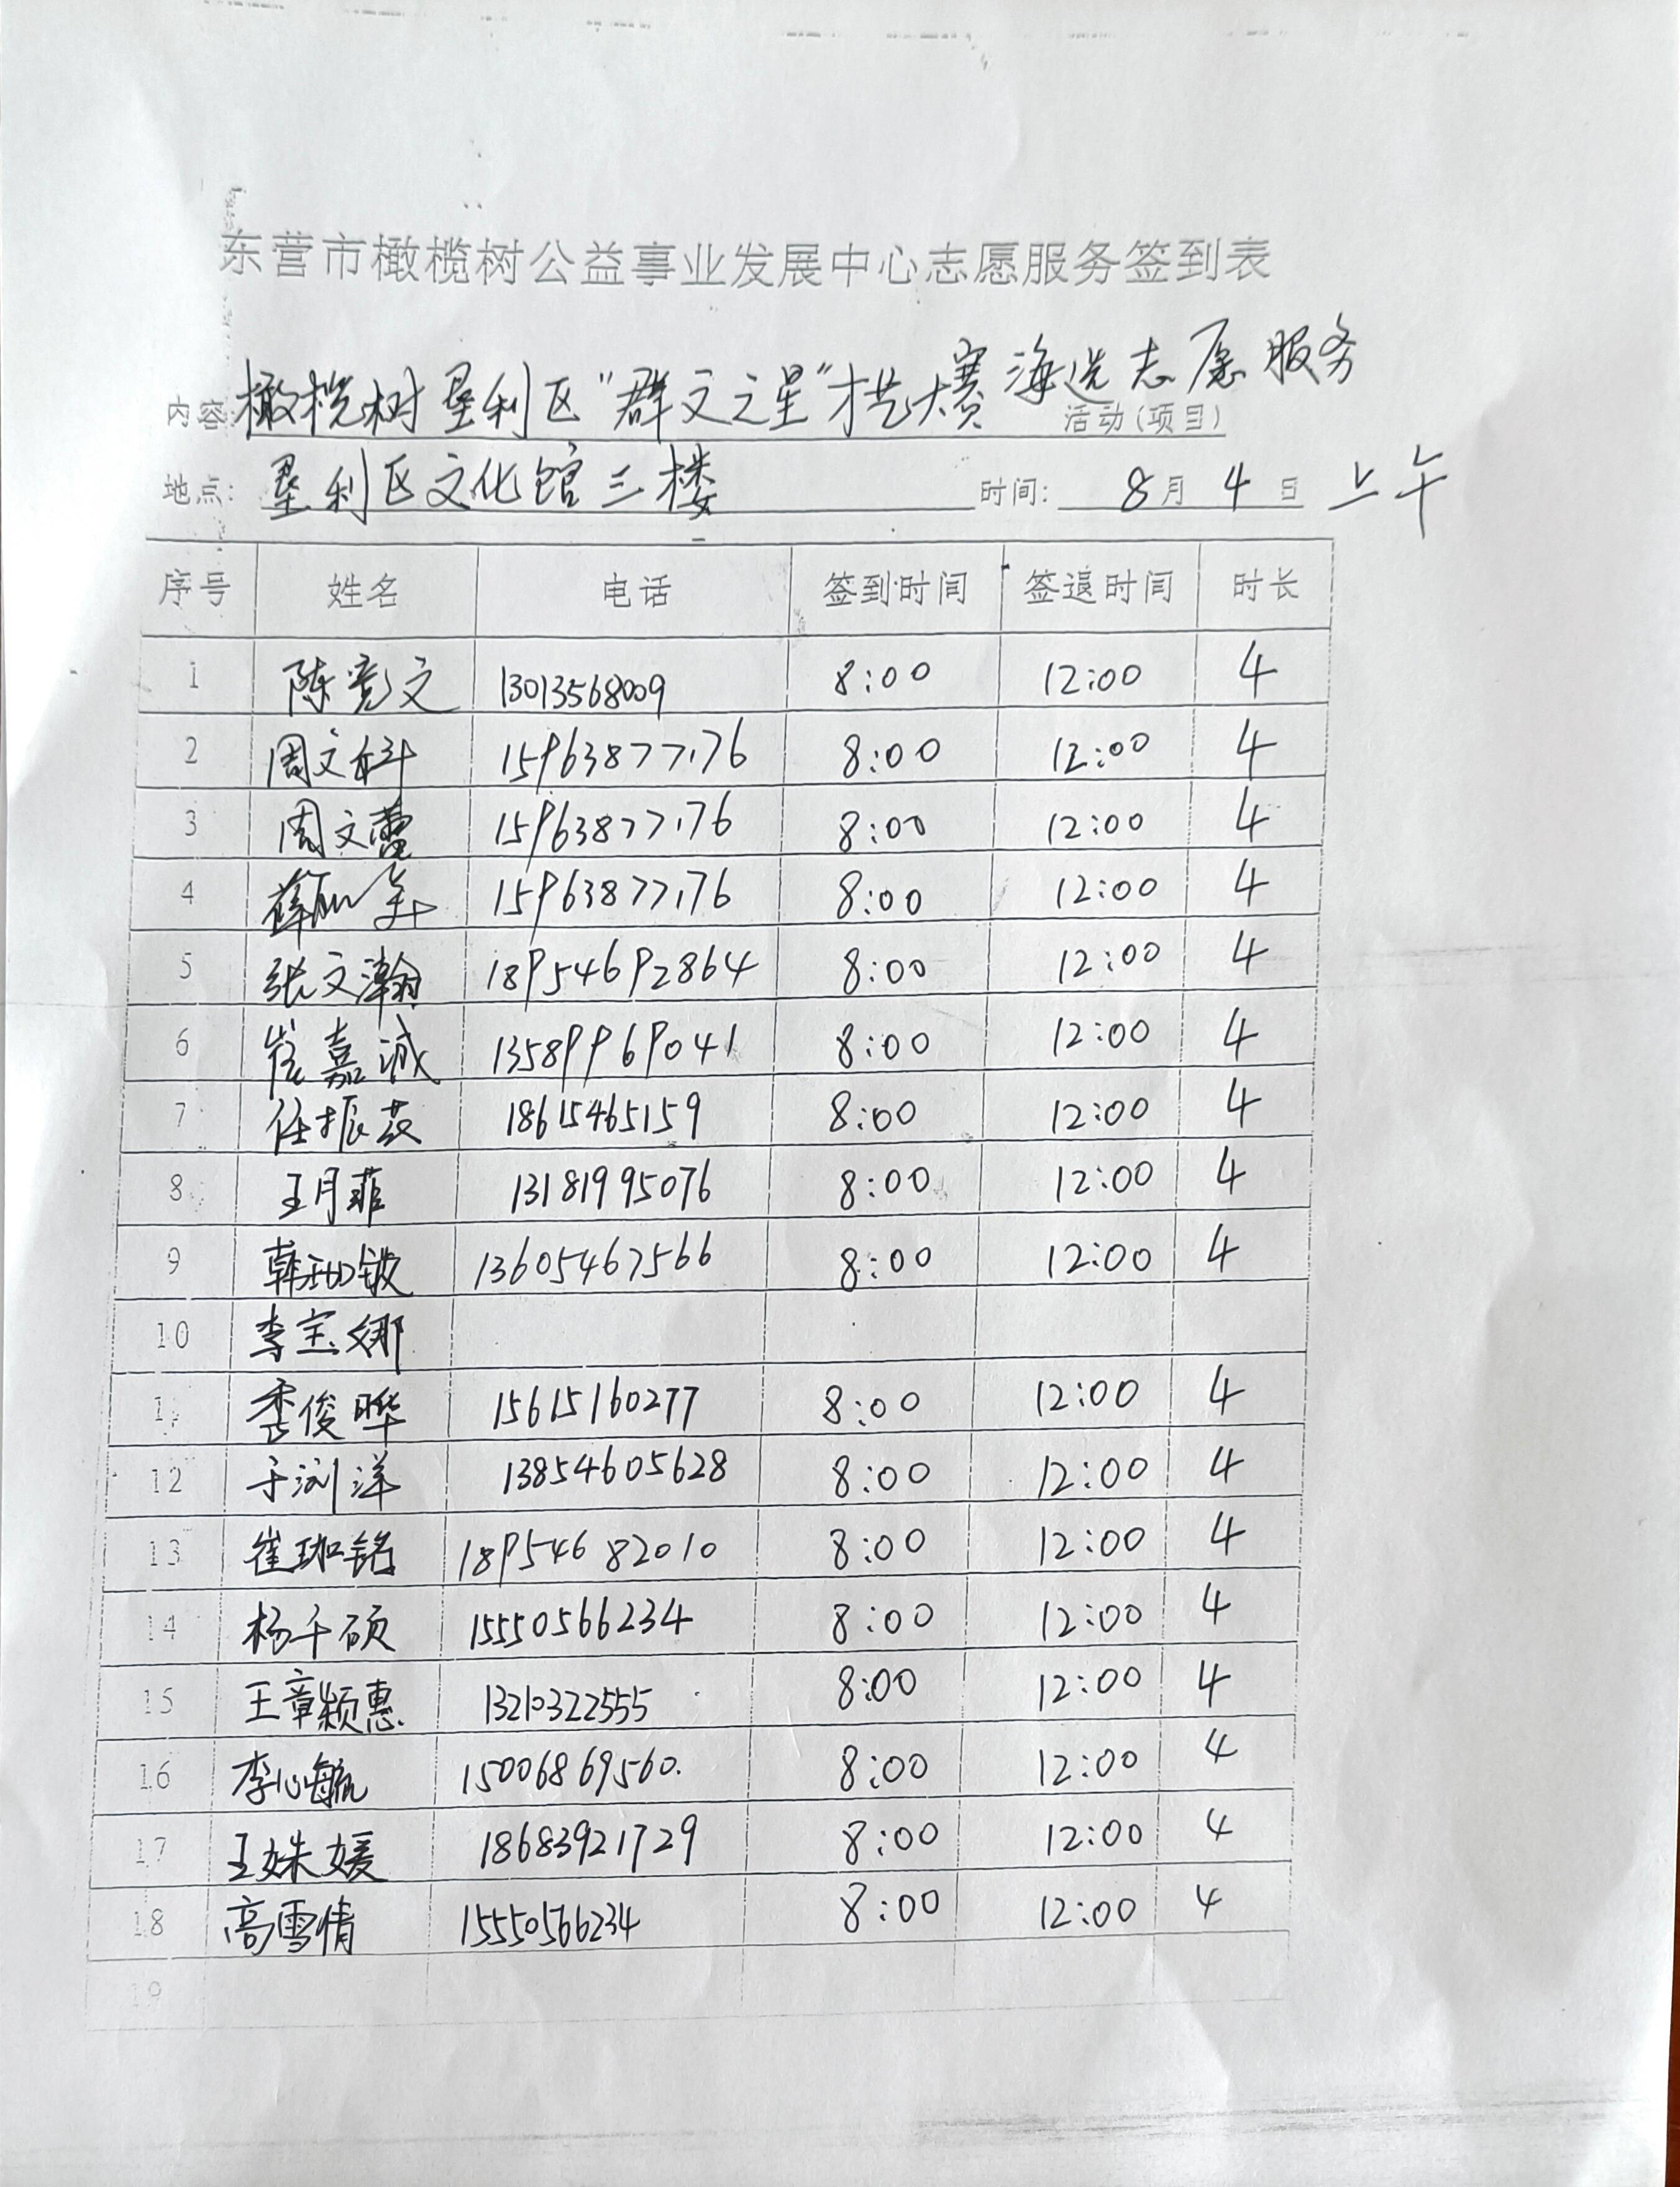 东营市橄榄树公益事业发展中心志愿服务签到表
内容: 橄榄树垦利区“群文之星”才艺大赛海选志愿服务 活动(项目)
地点: 垦利区文化馆三楼 时间: 8月4日 上午
序号 姓名 电话 签到时间 签退时间 时长
1 陈彦文 13013568009 8:00 12:00 4
2 周文科 15963877176 8:00 12:00 4
3 周文蕾 15963877176 8:00 12:00 4
4 薛 15963877176 8:00 12:00 4
5 张文瀚 18954692864 8:00 12:00 4
6 崔嘉诚 13589969041 8:00 12:00 4
7 任振 18615465159 8:00 12:00 4
8 王月菲 13181995076 8:00 12:00 4
9 韩 13605467566 8:00 12:00 4
10 李宝娜
11 季俊晔 15615160277 8:00 12:00 4
12 于浏洋 13854605628 8:00 12:00 4
13 崔珈铭 18954682010 8:00 12:00 4
14 杨千硕 15550566234 8:00 12:00 4
15 王章颖惠 13210322555 8:00 12:00 4
16 李心毓 15006869560. 8:00 12:00 4
17 王姝媛 18683921729 8:00 12:00 4
18 高雪倩 15550566234 8:00 12:00 4
19